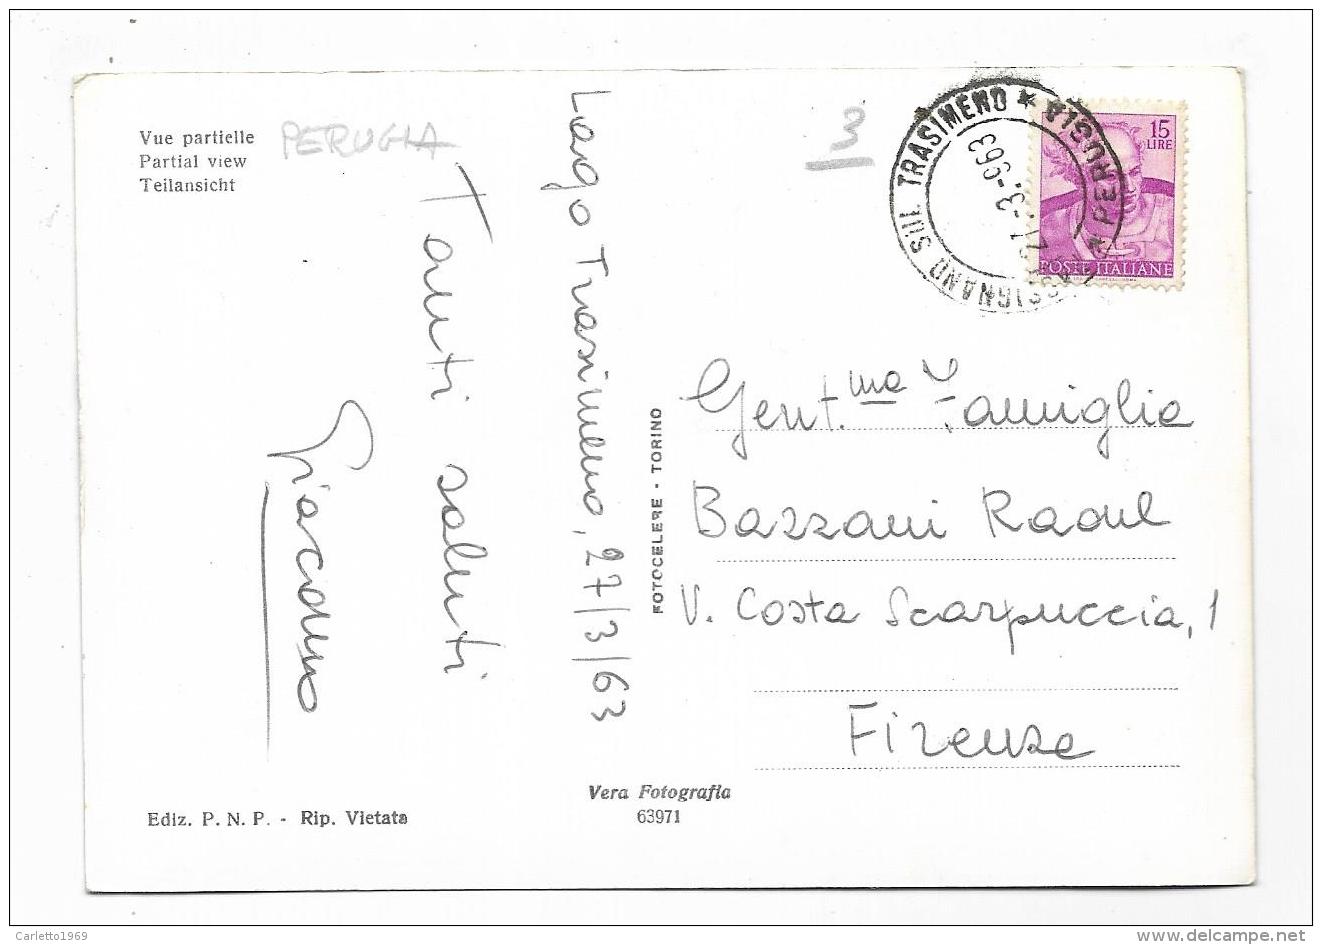 Vue partielle
Partial view
Teilansicht
PERUGIA
3
15
LIRE
POSTE ITALIANE
SIGNANO SUL TRASIMENO * PERUGIA *
27-3-963
Lago Trasimeno, 27/3/63
Tanti saluti
Giacomo
FOTOCELERE - TORINO
Gent.ma Famiglia
Bazzani Raoul
V. Costa Scarpuccia, 1
Firenze
Vera Fotografia
63971
Ediz. P. N. P. - Rip. Vietata
Carletto1969
www.delcampe.net